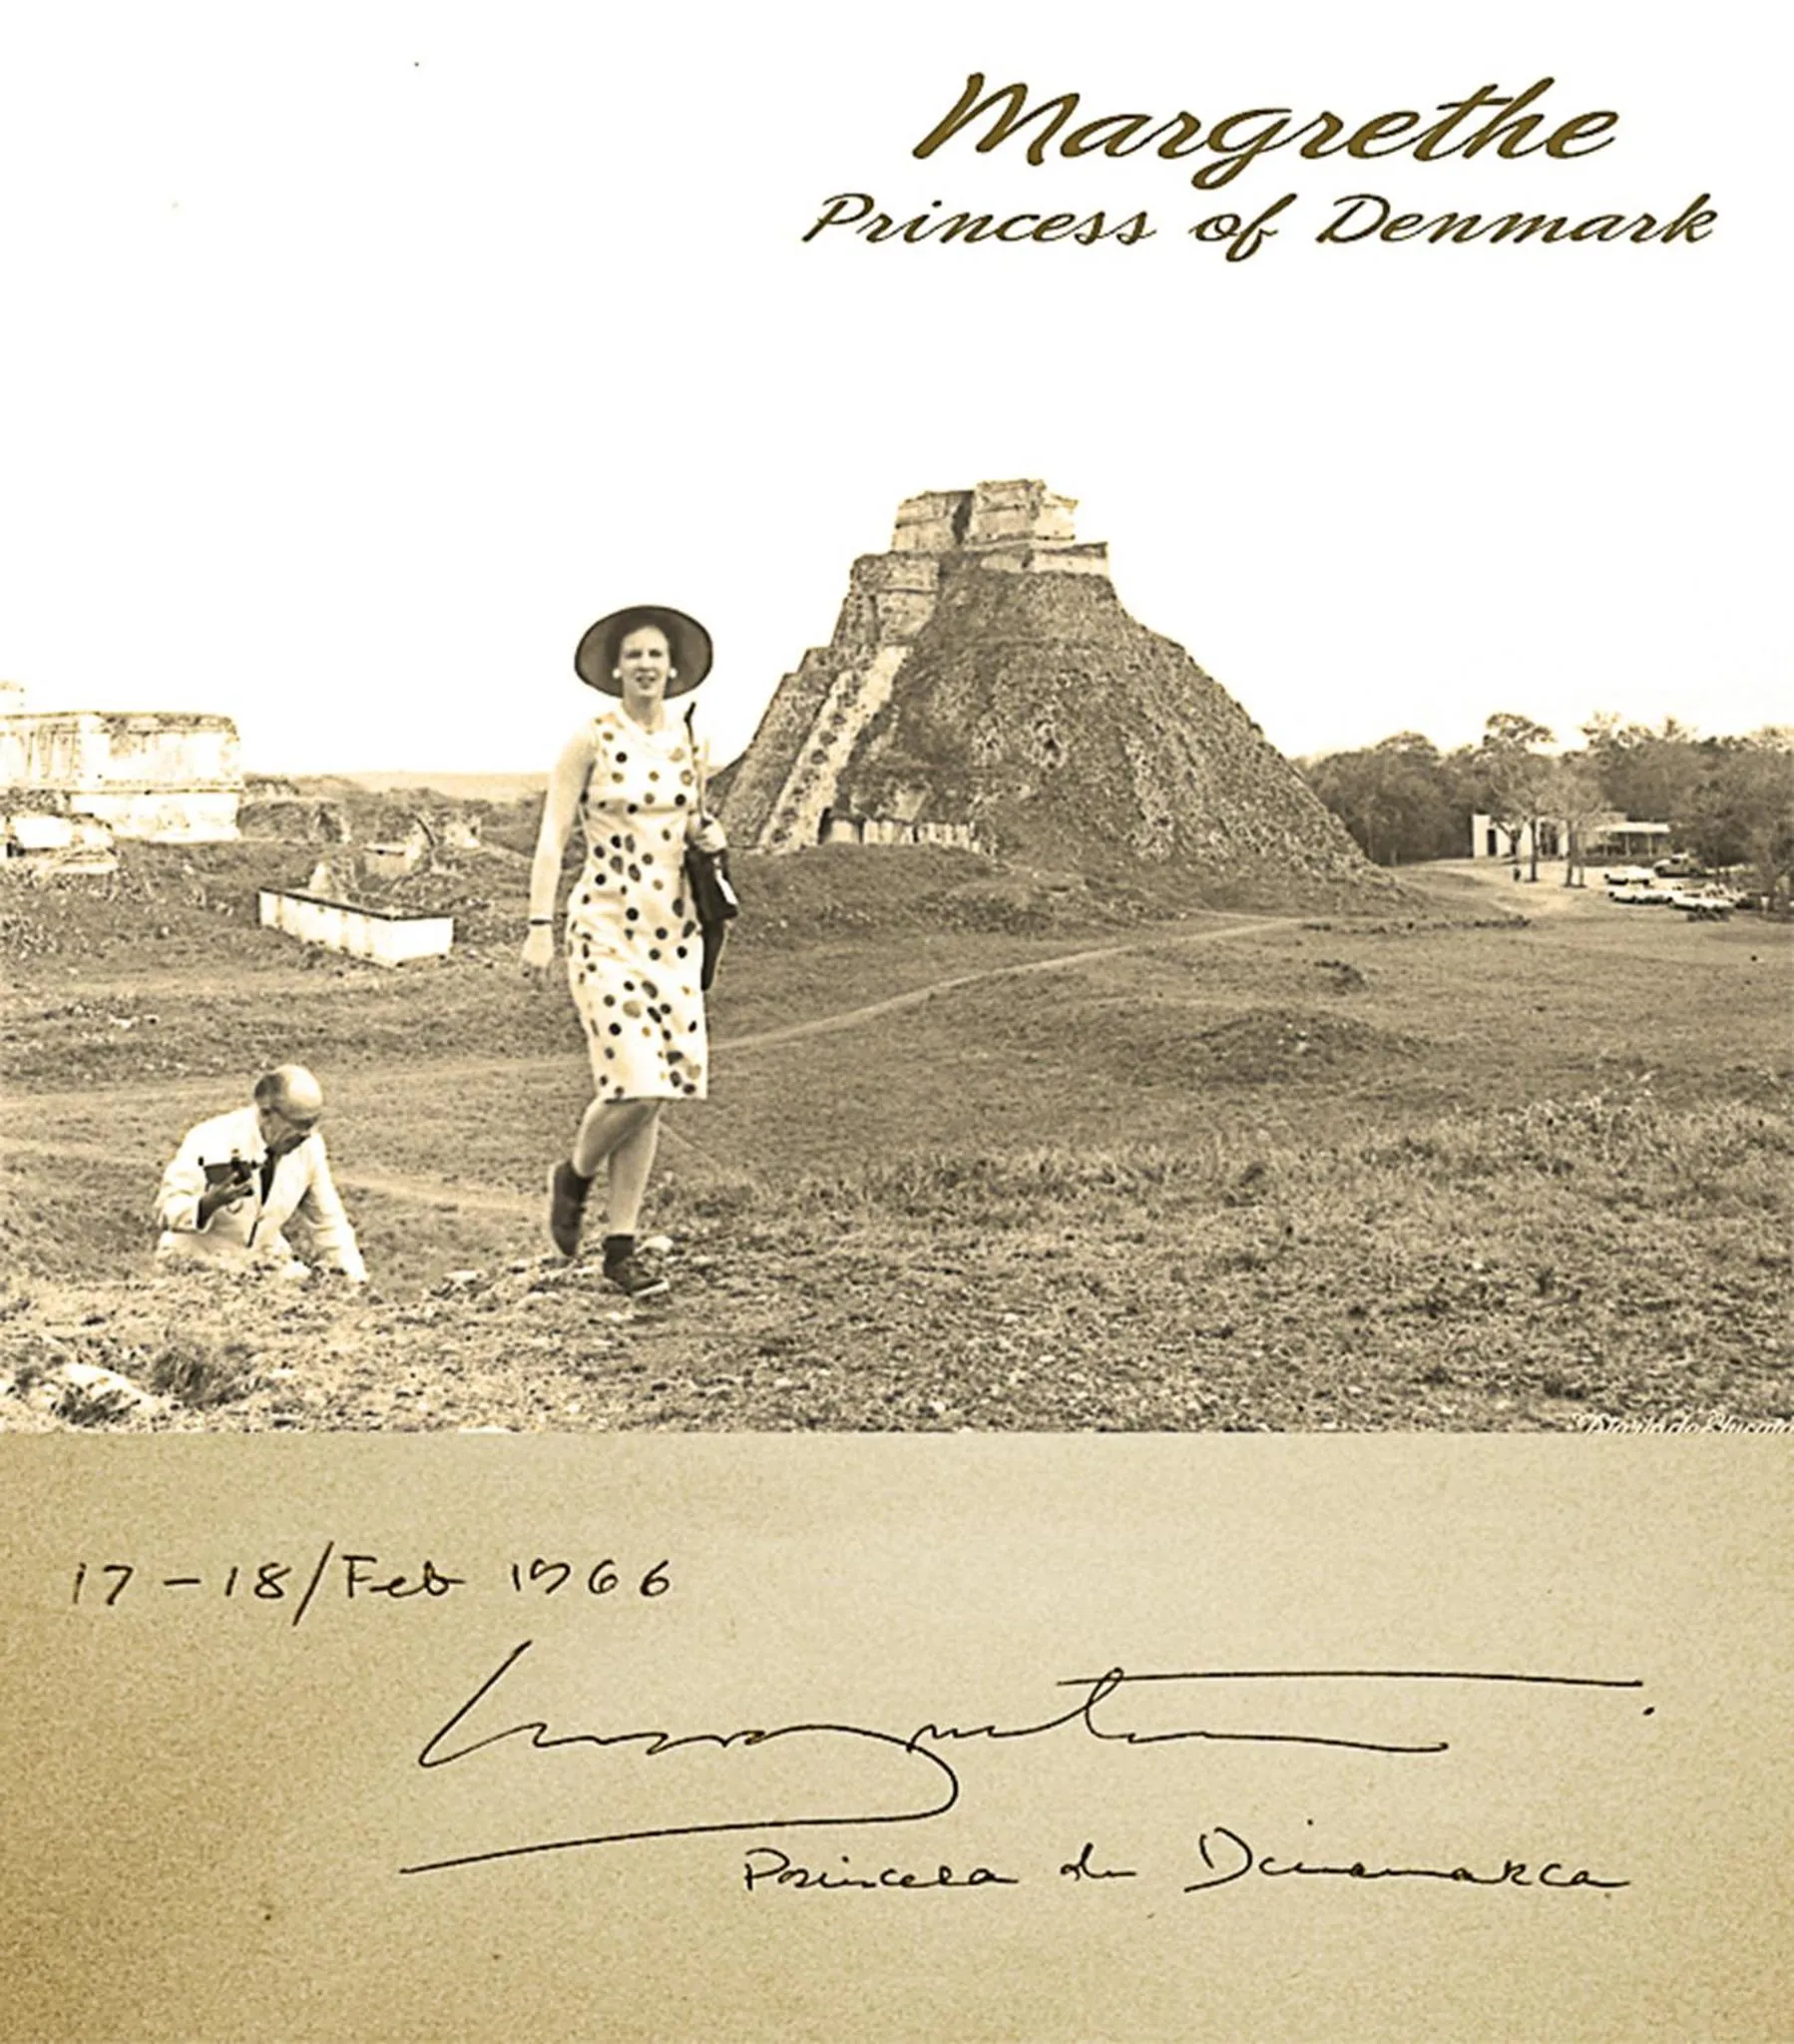 Margrethe
Princess of Denmark
Diario de Yucatán
17-18/Feb 1966
Margrethe
Princesa de Dinamarca